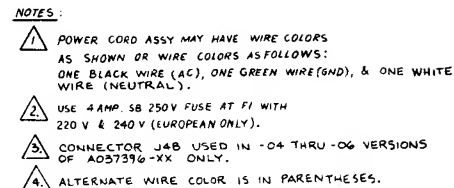 NOTES:
1. POWER CORD ASSY MAY HAVE WIRE COLORS
AS SHOWN OR WIRE COLORS AS FOLLOWS:
ONE BLACK WIRE (AC), ONE GREEN WIRE (GND), & ONE WHITE
WIRE (NEUTRAL).
2. USE 4 AMP. SB 250V FUSE AT F1 WITH
220 V & 240 V (EUROPEAN ONLY).
3. CONNECTOR J4B USED IN -04 THRU -06 VERSIONS
OF A037396-XX ONLY.
4. ALTERNATE WIRE COLOR IS IN PARENTHESES.